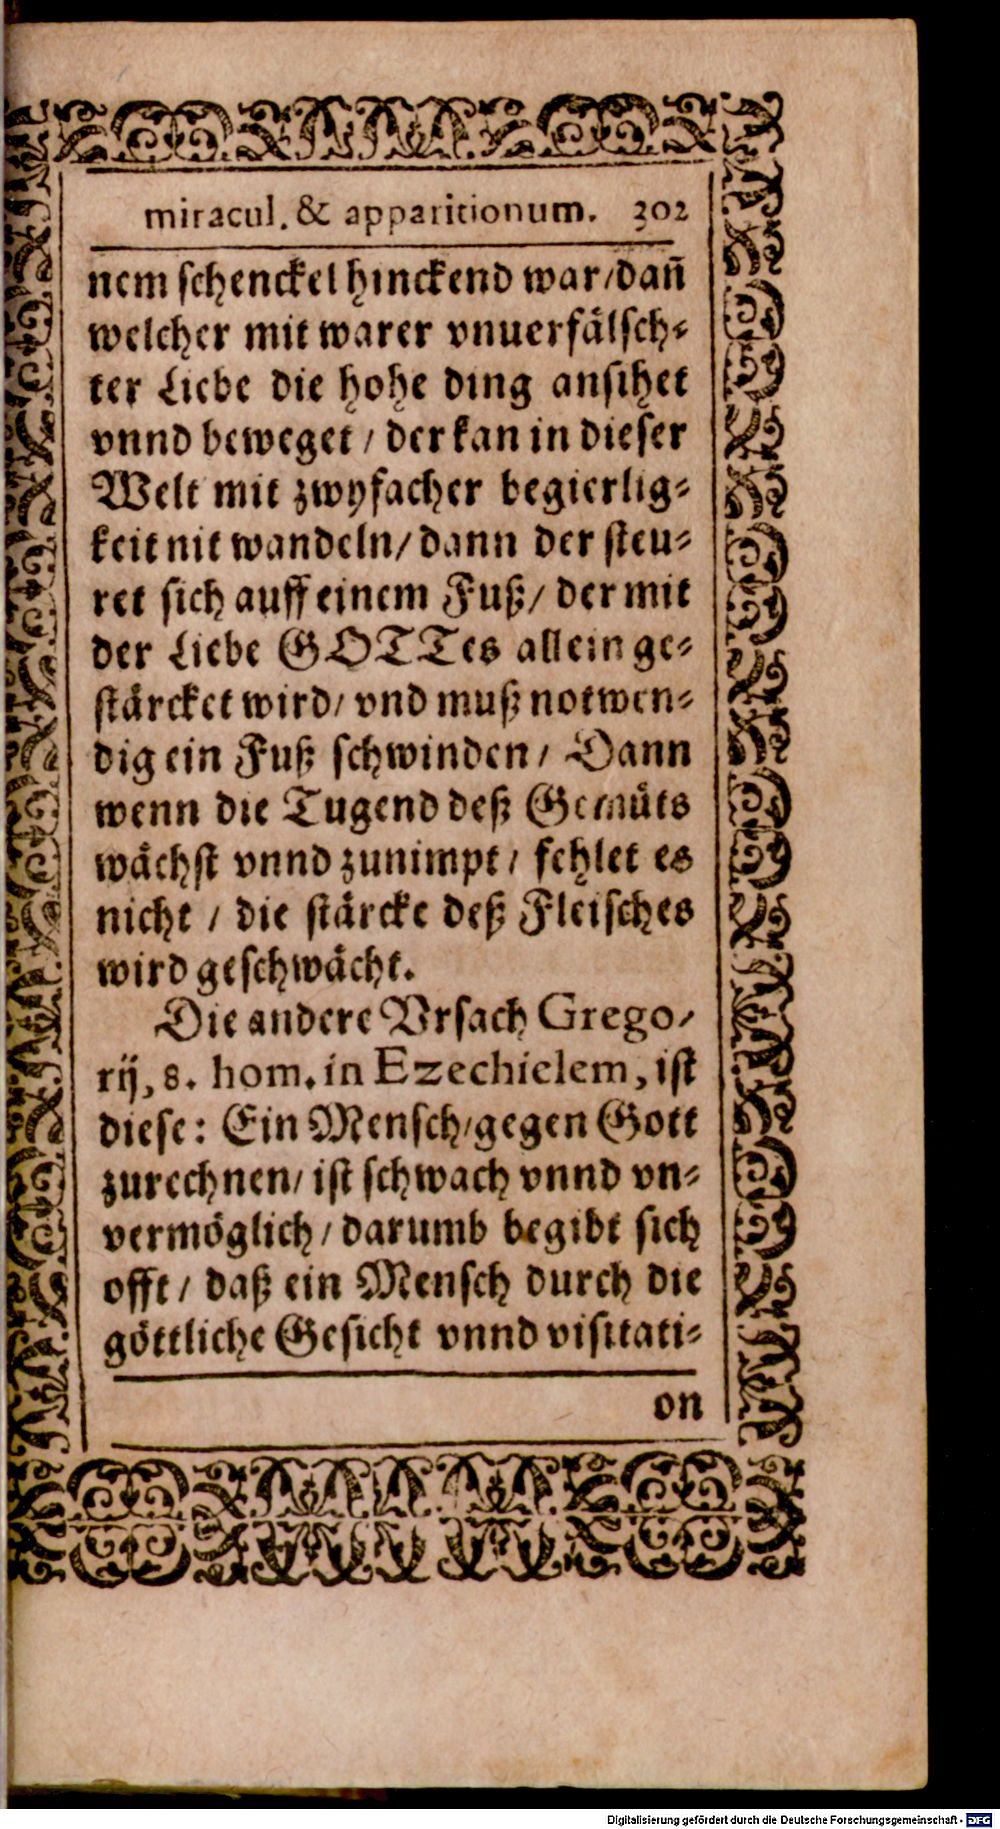 miracul. & apparitionum. 302
nem schenckel hinckend war/dañ
welcher mit warer vnuerfälsch⸗
ter Liebe die hohe ding ansihet
vnnd beweget / der kan in dieser
Welt mit zwyfacher begierlig⸗
keit nit wandeln/ dann der steu⸗
ret sich auff einem Fuß/ der mit
der Liebe GOTTes allein ge⸗
stärcket wird/ vnd muß notwen⸗
dig ein Fuß schwinden / Dann
wenn die Tugend deß Gemüts
wächst vnnd zunimpt / fehlet es
nicht / die stärcke deß Fleisches
wird geschwächt.
Die andere Vrsach Grego/
rij, 8. hom. in Ezechielem, ist
diese: Ein Mensch/gegen Gott
zurechnen/ ist schwach vnnd vn⸗
vermöglich / darumb begibt sich
offt / daß ein Mensch durch die
göttliche Gesicht vnnd visitati⸗
on
Digitalisierung gefördert durch die Deutsche Forschungsgemeinschaft - DFG